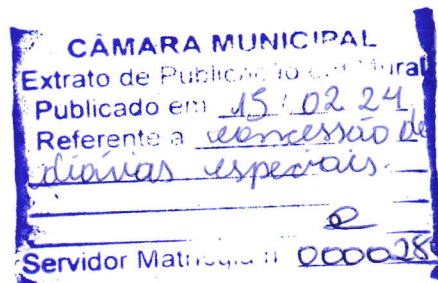 CÂMARA MUNICIPAL
Extrato de Publicação em Mural
Publicado em 15/02/24
Referente a concessão de
diárias especiais.
Servidor Matrícula n 0000280